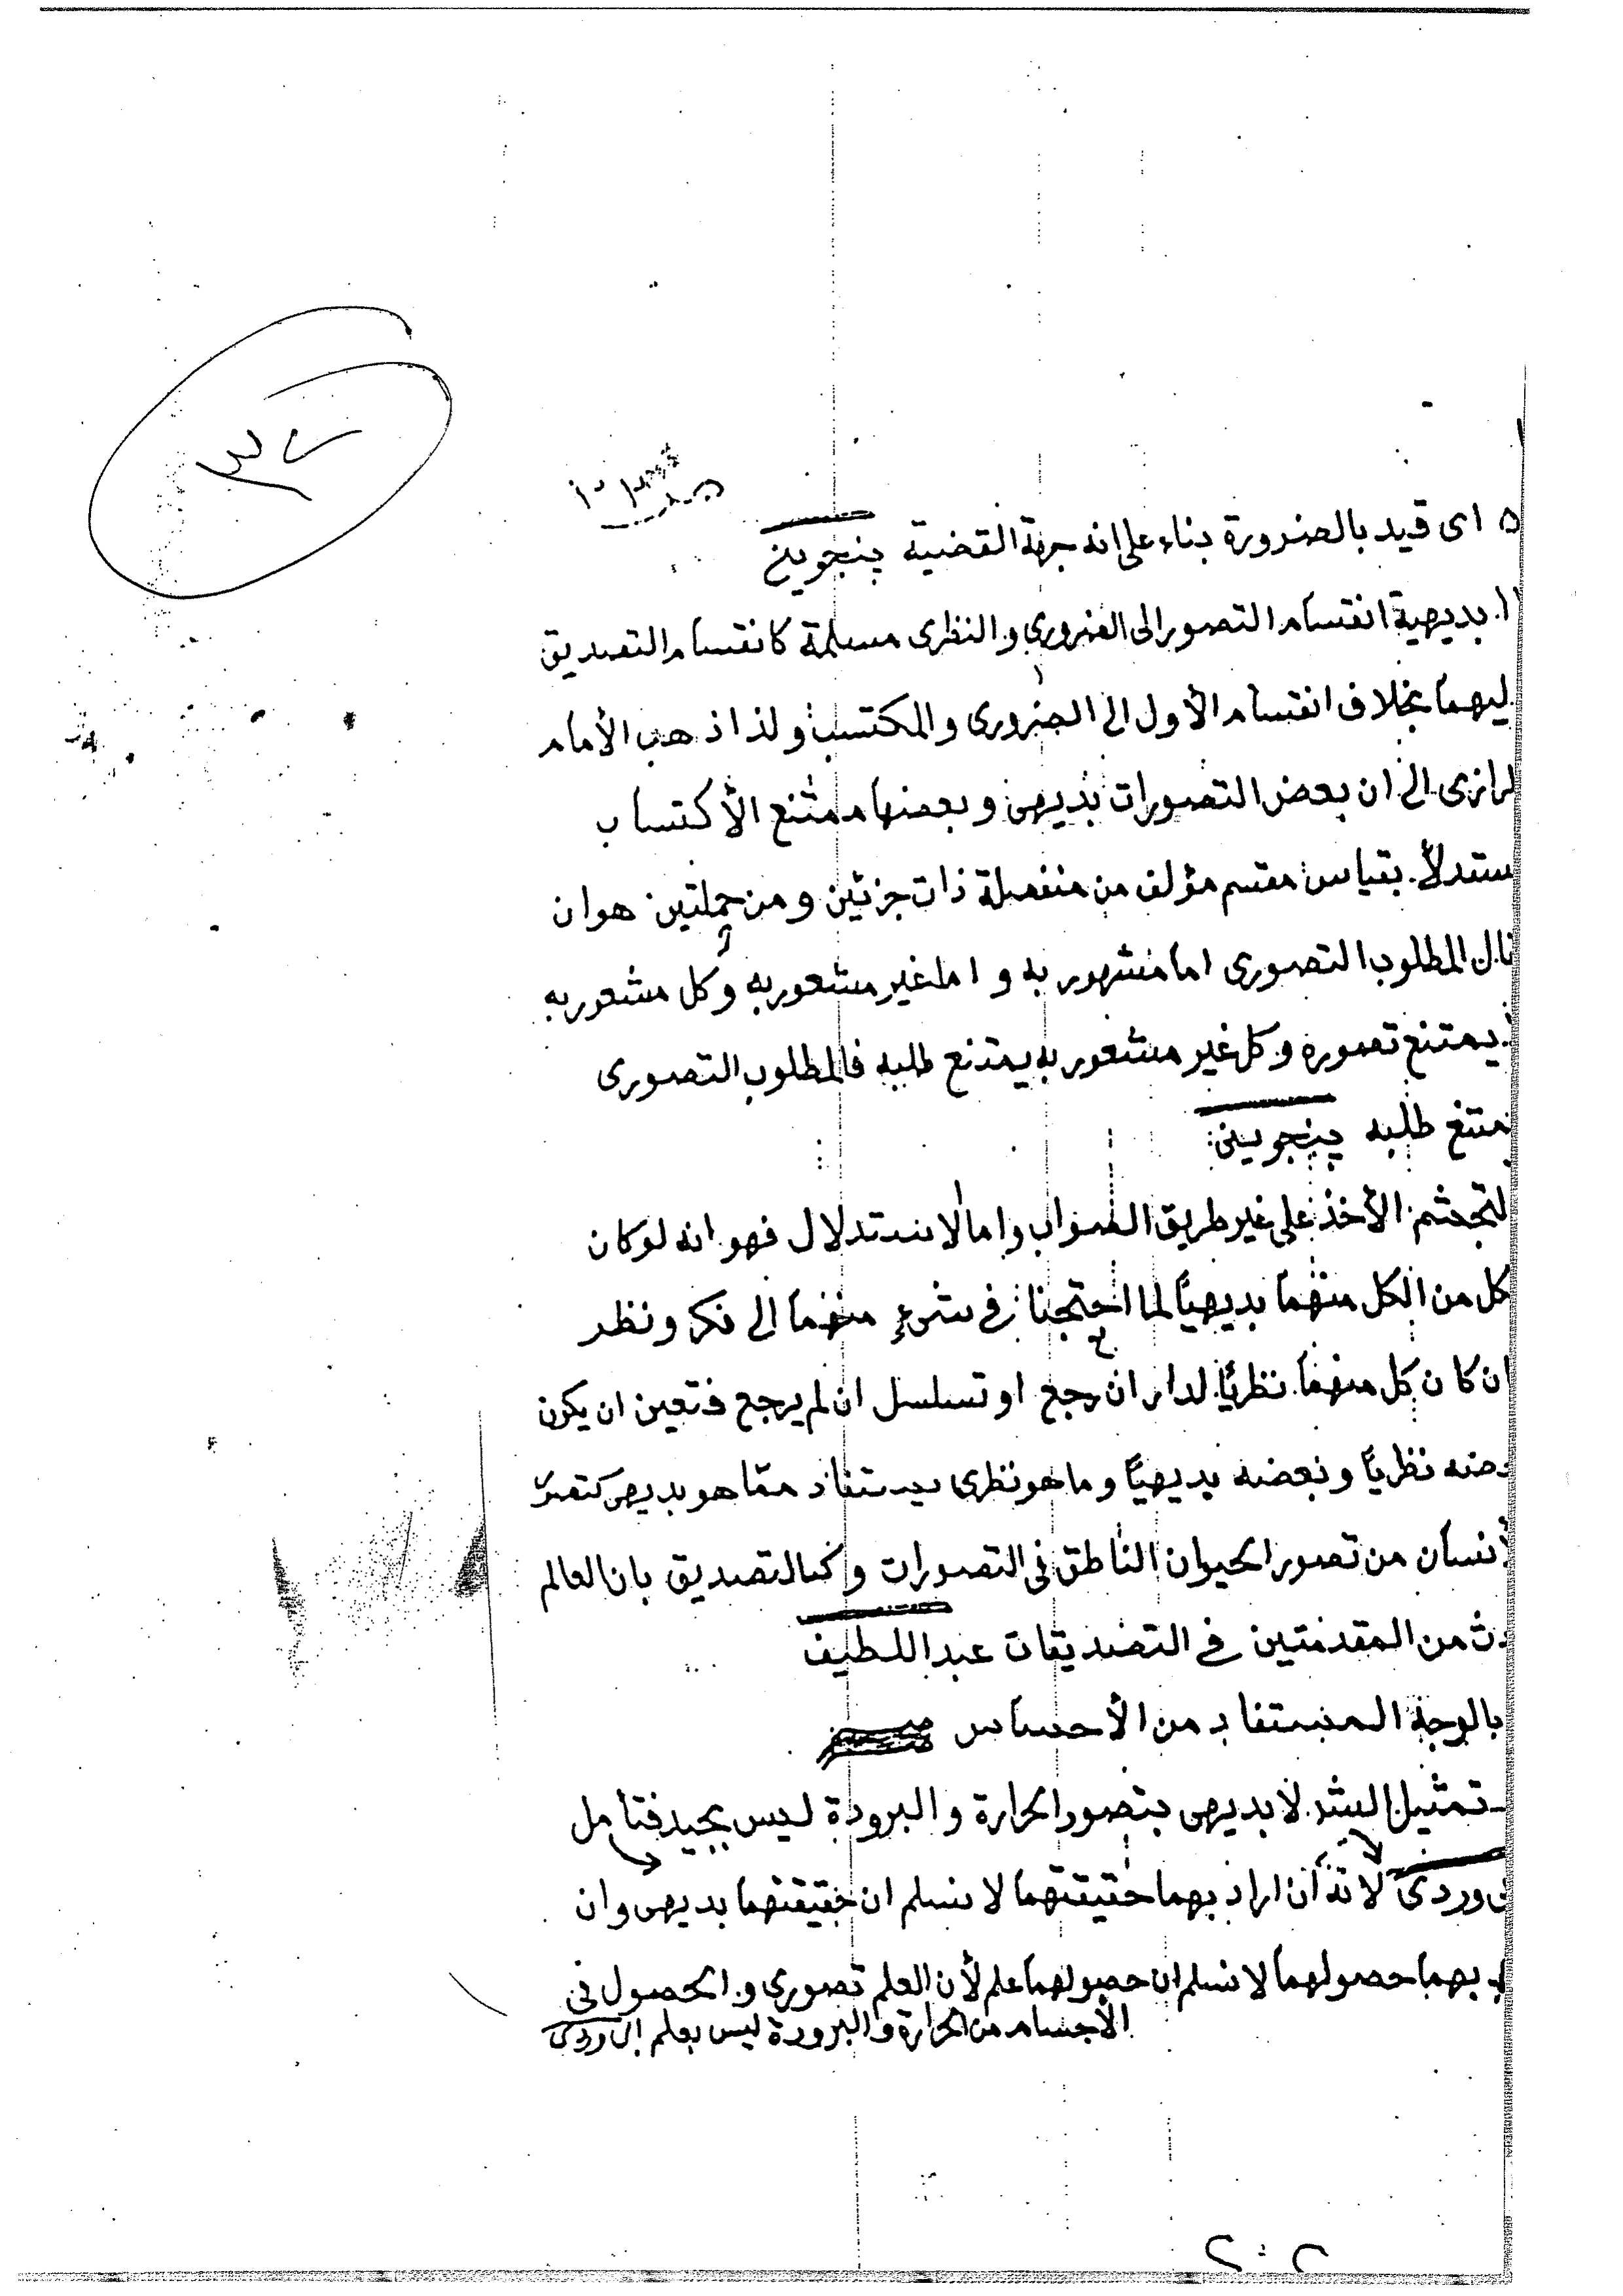 ٥ اى قيد بالضرورة بناء على انه جهة القضية پنجوينى
بديهية انقسام التصور الى الضرورى والنظرى مسلمة كانقسام التصديق
ليهما بخلاف انقسام الأول الى الضرورى والمكتسب ولذا ذهب الأمام
لرازى الى ان بعض التصورات بديهى وبعضها ممتنع الأكتساب
ستدلاً بقياس مقسم مؤلف من منفصلة ذات جزئين ومن حمليتين هو ان
المطلوب التصورى اما مشهور به و اما غير مشعور به وكل مشعور به
يمتنع تصوره وكل غير مشعور به يمتنع طلبه فالمطلوب التصورى
متنع طلبه پنجوينى
لتجشم الأخذ على غير طريق الصواب واما الاستدلال فهو انه لو كان
كل من الكل منهما بديهياً لما احتجنا فى شىء منهما الى فكر ونظر
ان كان كل منهما نظرياً لدار ان رجع او تسلسل ان لم يرجع فتعين ان يكون
ضه نظرياً وبعضه بديهياً وما هو نظرى يستفاد مما هو بديهى كتصور
لأنسان من تصور الحيوان الناطق فى التصورات وكالتصديق بان العالم
دث من المقدمتين فى التصديقات عبد اللطيف
بالوجه المستفاد من الأحساس
تمثيل الشد لا بديهى بتصور الحرارة والبرودة ليس بجيد فتامل
وردى لانه ان اراد بهما حقيقتهما لا نسلم ان حقيقتهما بديهى وان
بهما حصولهما لا نسلم ان حصولهما علم لأن العلم تصورى والحصول فى
الأجسام من الحرارة والبرودة ليس بعلم